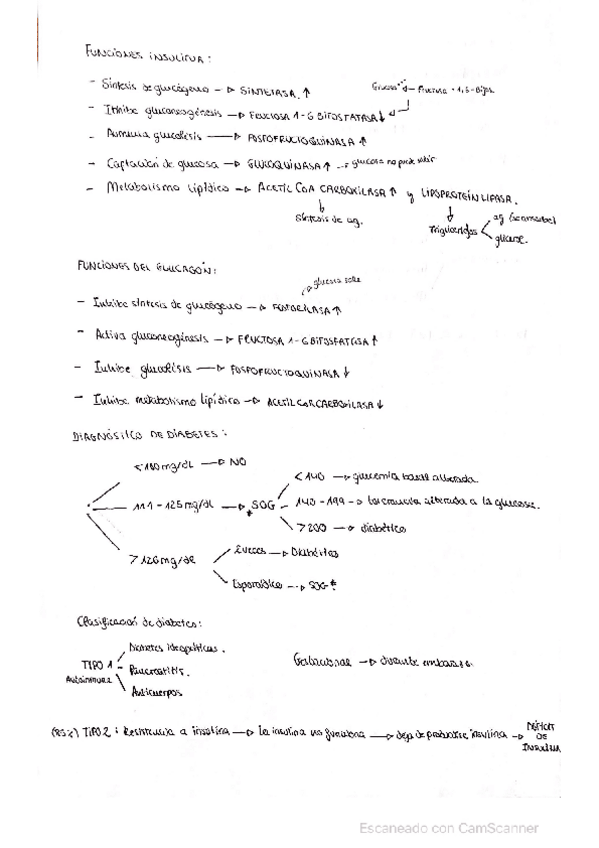 FUNCIONES INSULINA:
- Síntesis de glucógeno → SINTETASA ↑
Glucosa Fructosa - 1,6 - Bifos.
- Inhibe gluconeogénesis → FRUCTOSA 1-6 BIFOSFATASA ↓
- Aumenta glucólisis → FOSFOFRUCTOQUINASA ↑
- Captación de glucosa → GLUCOQUINASA ↑ → glucosa no puede salir
- Metabolismo lipídico → ACETIL COA CARBOXILASA ↑ y LIPOPROTEÍN LIPASA.
síntesis de ag.
Triglicéridos
ag
glicerol.
FUNCIONES DEL GLUCAGÓN:
glucosa sale
- Inhibe síntesis de glucógeno → FOSFORILASA ↑
- Activa gluconeogénesis → FRUCTOSA 1-6 BIFOSFATASA ↑
- Inhibe glucólisis → FOSFOFRUCTOQUINASA ↓
- Inhibe metabolismo lipídico → ACETIL COA CARBOXILASA ↓
DIAGNÓSTICO DE DIABETES:
mg/dL → NO
< 140 → glucemia basal alterada.
111 - 125 mg/dL → SOG
140 - 199 → alterada a la glucosa.
> 200 → diabético
> 126 mg/dL
2 veces → Diabétes
Esporádico → SOG *
Clasificación de diabetes:
Diabetes idiopáticas.
TIPO 1
Autoinmune
Pancreatitis.
Anticuerpos
Gestacional → durante embarazo.
TIPO 2: Resistencia a insulina → la insulina no funciona → deja de producirse insulina → DÉFICIT
DE
INSULINA
Escaneado con CamScanner